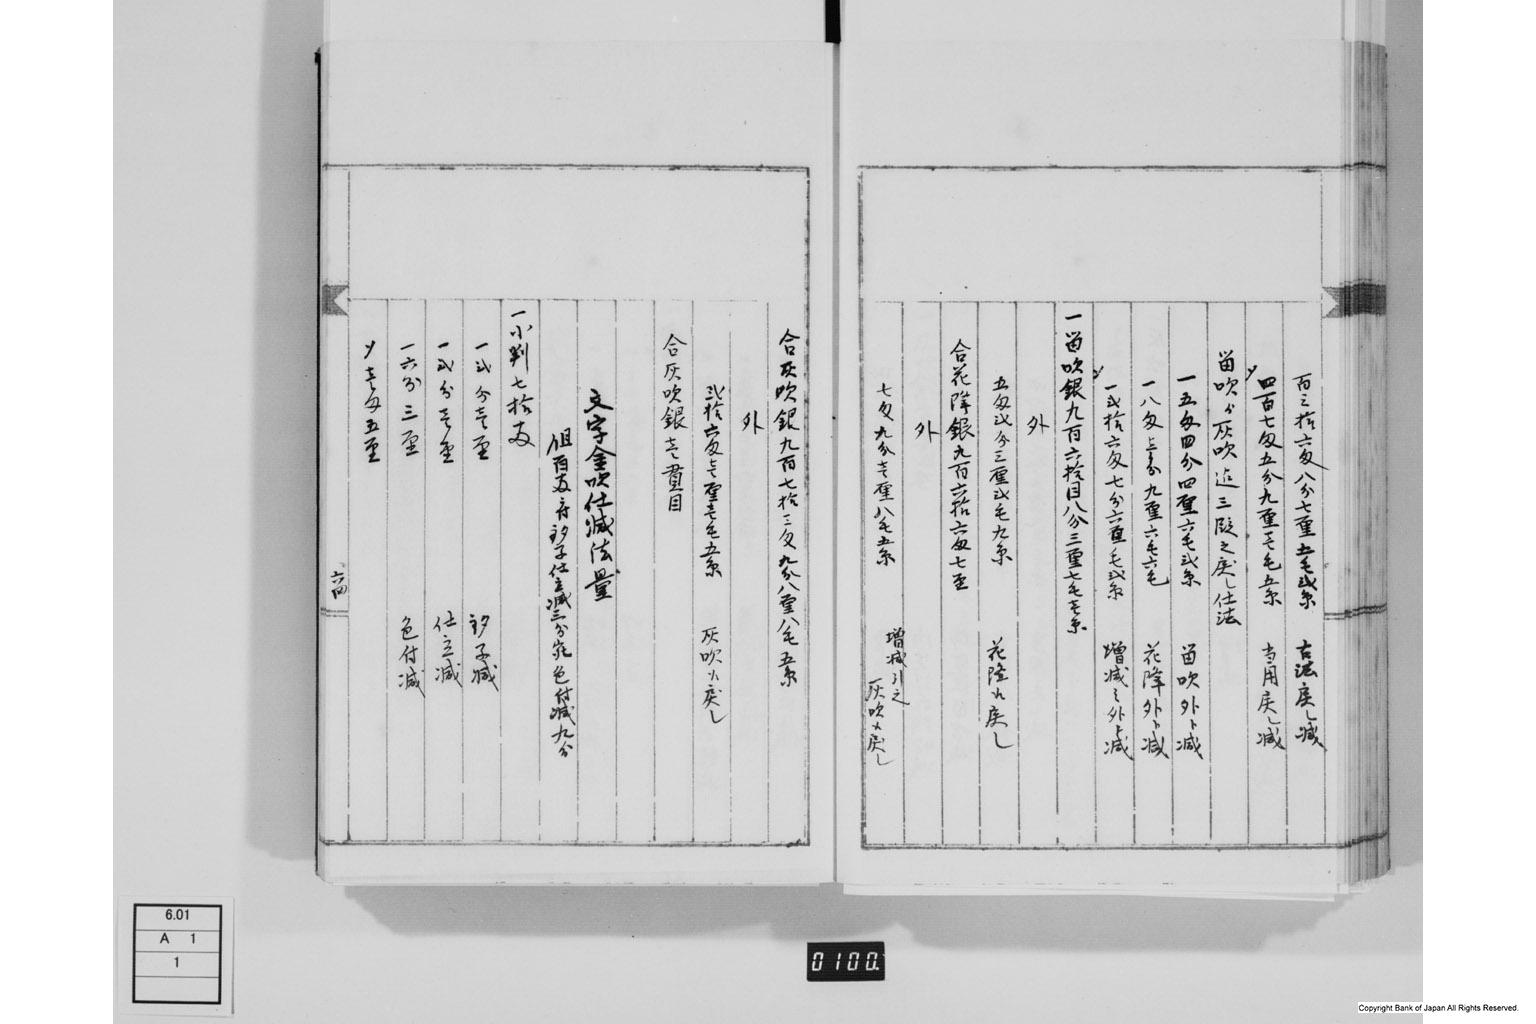 百三拾六匁八分七厘五毛弐糸 古法戻し減
〆四百七匁五分九厘壱毛五糸 当用戻し減
留吹ゟ灰吹迄三段之戻し仕法
一五匁四分四厘六毛弐糸 留吹外ト減
一八匁壱分九厘六毛六毛 花降外ト減
〆一弐拾六匁七分六厘毛弐糸 増減之外ト減
一留吹銀九百六拾目八分三厘七毛壱糸
外
五匁弐分三厘弐毛九糸 花降ゟ戻し
合花降銀九百六拾六匁七厘
外
七匁九分壱厘八毛五糸 増減引之 灰吹ゟ戻し
合灰吹銀九百七拾三匁九分八厘八毛五糸
外
弐拾六匁壱厘壱毛五糸 灰吹ゟ戻し
合灰吹銀壱貫目
文字金吹仕減法量
但百両ニ付 砂子仕立減三分宛色付減九分
一小判七拾両
一弐分壱厘 砂子減
一弐分壱厘 仕立減
一六分三厘 色付減
〆壱匁五厘
六四
6.01
A 1
1
0100.
Copyright Bank of Japan All Rights Reserved.